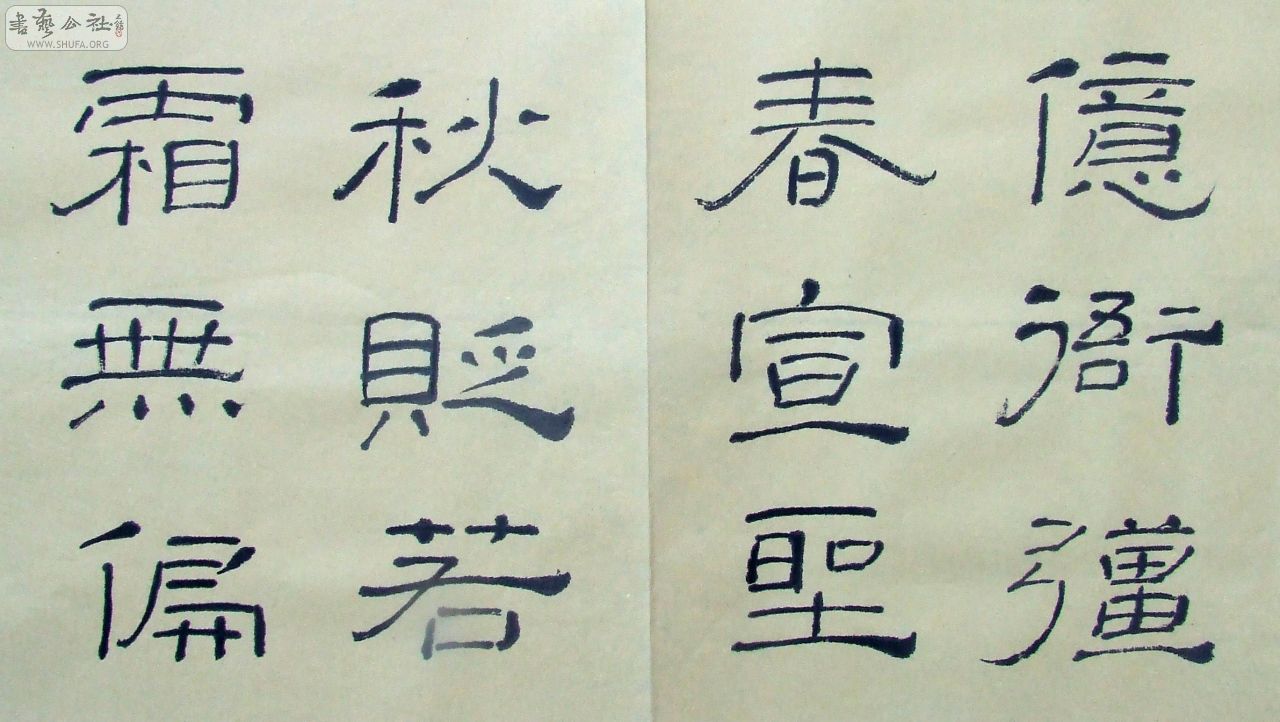 書藝公社
WWW.SHUFA.ORG
億衙彊
春宣聖
秋貶若
霜無偏